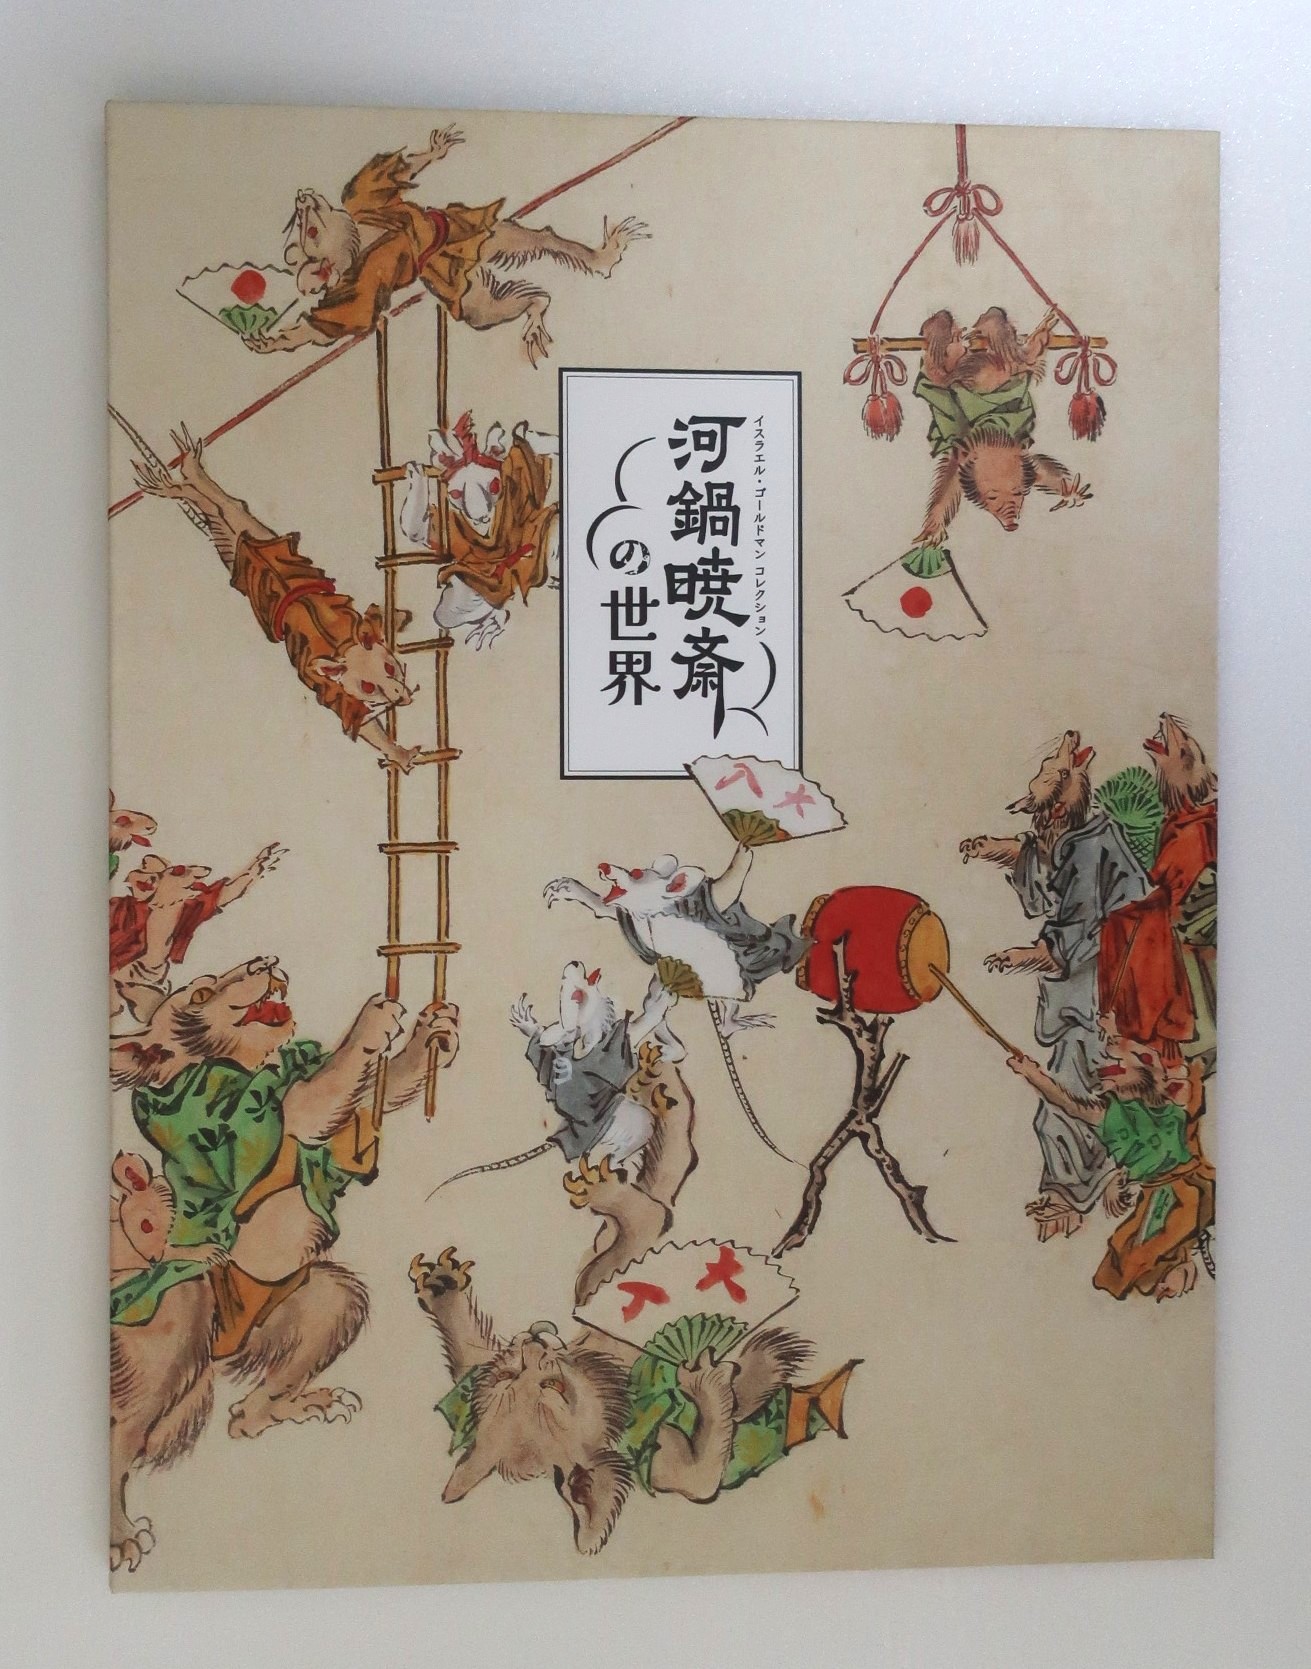 イスラエル・ゴールドマン コレクション
河鍋暁斎
の世界
大入
大入